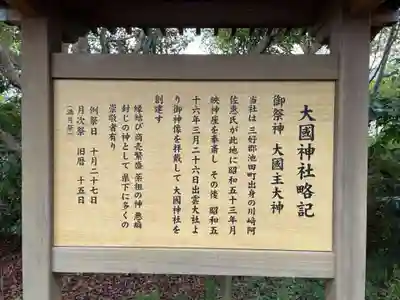 大國神社略記
御祭神 大國主大神
当社は 三好郡池田町出身の川﨑阿
佐恵氏が此地に昭和五十三年月
映神座を奉斎し その後 昭和五
十六年三月二十六日出雲大社よ
り御神像を拝戴して 大國神社を
創建す
縁結び 商売繁盛 薬祖の神 悪癪
封じの神として 県下に多くの
崇敬者有り
例祭日 十月二十七日
月次祭 旧暦 十五日
(満月祭)